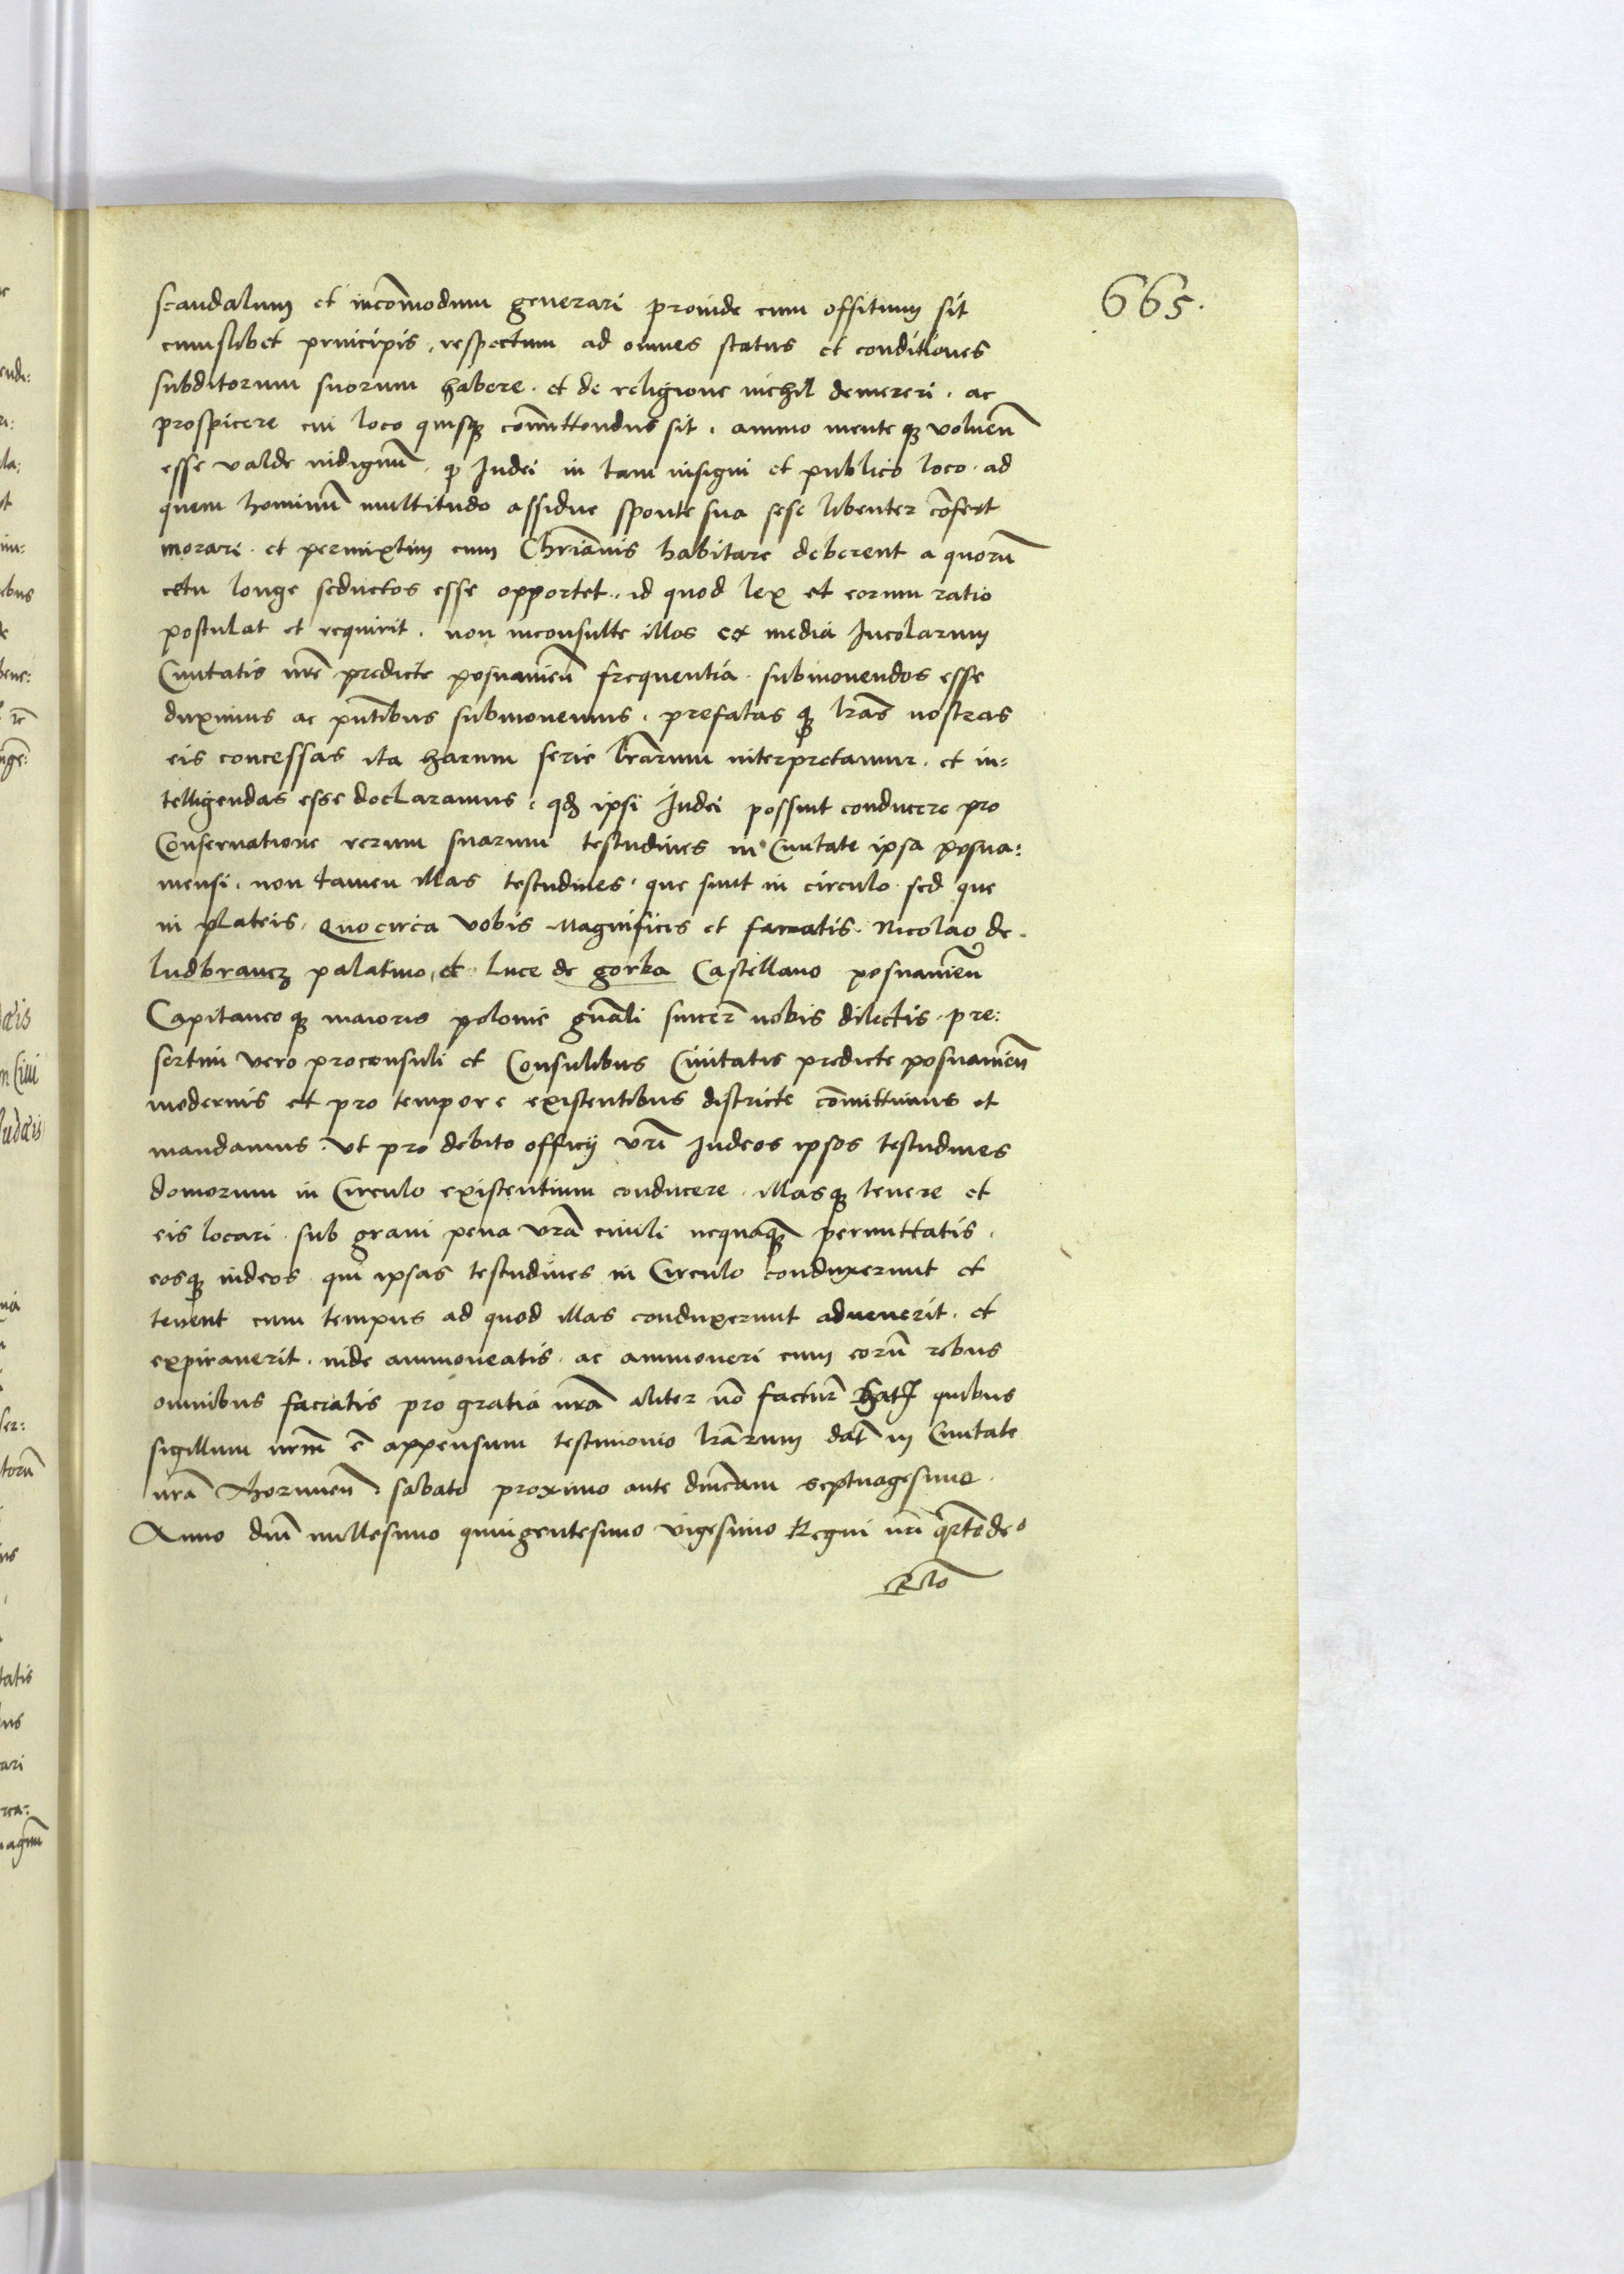 665.
scandalum et incom̄odum generari proinde cum offitium sit
cuiuslibet principis, respectum ad omnes status et conditiones
subditorum suorum habere. et de religione nichil demereri. ac
prospicere cui loco quisq̷ com̄ittendus sit. animo mente q̷ voluen̄
esse valde indignū. q̷ Iudei in tam insigni et publico loco. ad
quem hominū multitudo assidue sponte sua sese libenter cōfert
morari. et permixtim cum Chrianis habitare deberent a quorū
cetu longe seductos esse opportet. id quod lex et eorum ratio
postulat et requirit. non inconsulte illos ex media Incolarum
Ciuitatis nrē predicte posnanien̄ frequentia. submouendos esse
duximus ac pn̄tibus submouemus. prefatas q̷ lrās nostras
eis concessas ita harum serie lrārum interpretamur. et in=
telligendas esse declaramus. qđ ipsi Iudei possint conducere pro
Conseruatione rerum suarum testudines in Ciuitate ipsa posna=
niensi. non tamen illas testudines. que sunt in circulo. sed que
in plateis. Quocirca vobis Magnificis et famatis. Nicolao de.
ludbrancz palatino, et Luce de gorka Castellano posnanien̄
Capitaneo q̷ maioris polonie gn̄ali sincer̄ nobis dilectis. pre=
sertim vero proconsuli et Consulibus Ciuitatis predicte posnanien̄
modernis et pro tempore existentibus districte com̄ittimus et
mandamus. Vt pro debito officij vrī Iudeos ipsos testudines
domorum in Circulo existentium conducere. illasq̷ tenere et
eis locari. sub graui pena vrā ciuili nequaq̷̄ permittatis.
eosq̷ iudeos qui ipsas testudines in Circulo conduxerunt et
tenent cum tempus ad quod illas conduxerunt aduenerit. et
expirauerit. inde ammoueatis. ac ammoueri cum eorū rebus
omnibus faciatis pro gratia nrā aliter nō factur̄ quibus
sigillum nrm̄ ē appensum testimonio lrārum dat̄ in Ciuitate
nrā Thorunen̄. sabato proximo ante dn̄icam septuagesime.
Anno dn̄i millesimo quingentesimo vigesimo Regni nrī q̄rtode°